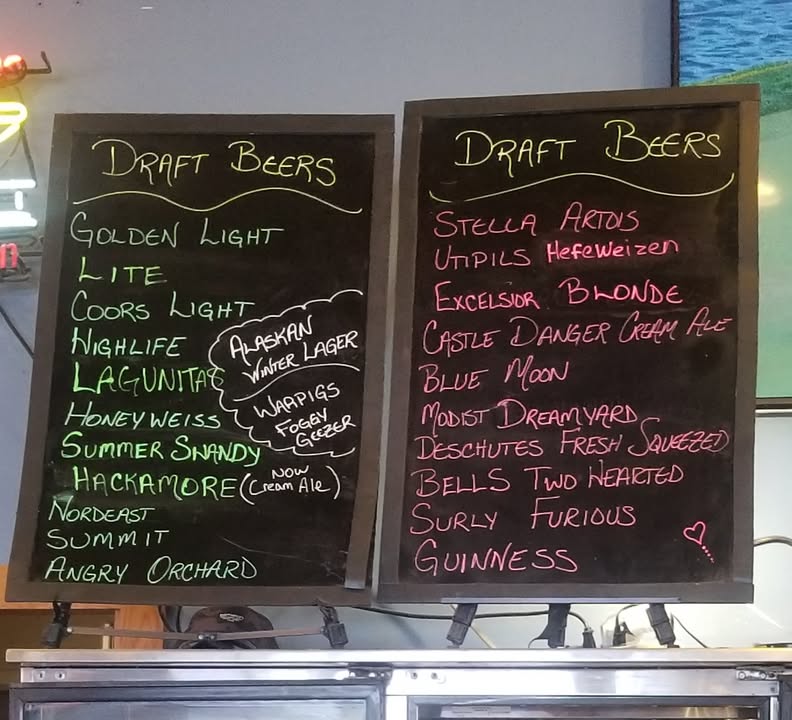 DRAFT BEERS
GOLDEN LIGHT
LITE
COORS LIGHT
HIGHLIFE
LAGUNITAS
HONEYWEISS
SUMMER SHANDY
HACKAMORE (NOW Cream Ale)
NORDEAST
SUMMIT
ANGRY ORCHARD
ALASKAN
WINTER LAGER
WARPIGS
FOGGY
GEEZER
DRAFT BEERS
STELLA ARTOIS
UTIPILS HefeWeizen
EXCELSIOR BLONDE
CASTLE DANGER CREAM ALE
BLUE MOON
MODIST DREAMYARD
DESCHUTES FRESH SQUEEZED
BELLS TWO HEARTED
SURLY FURIOUS
GUINNESS